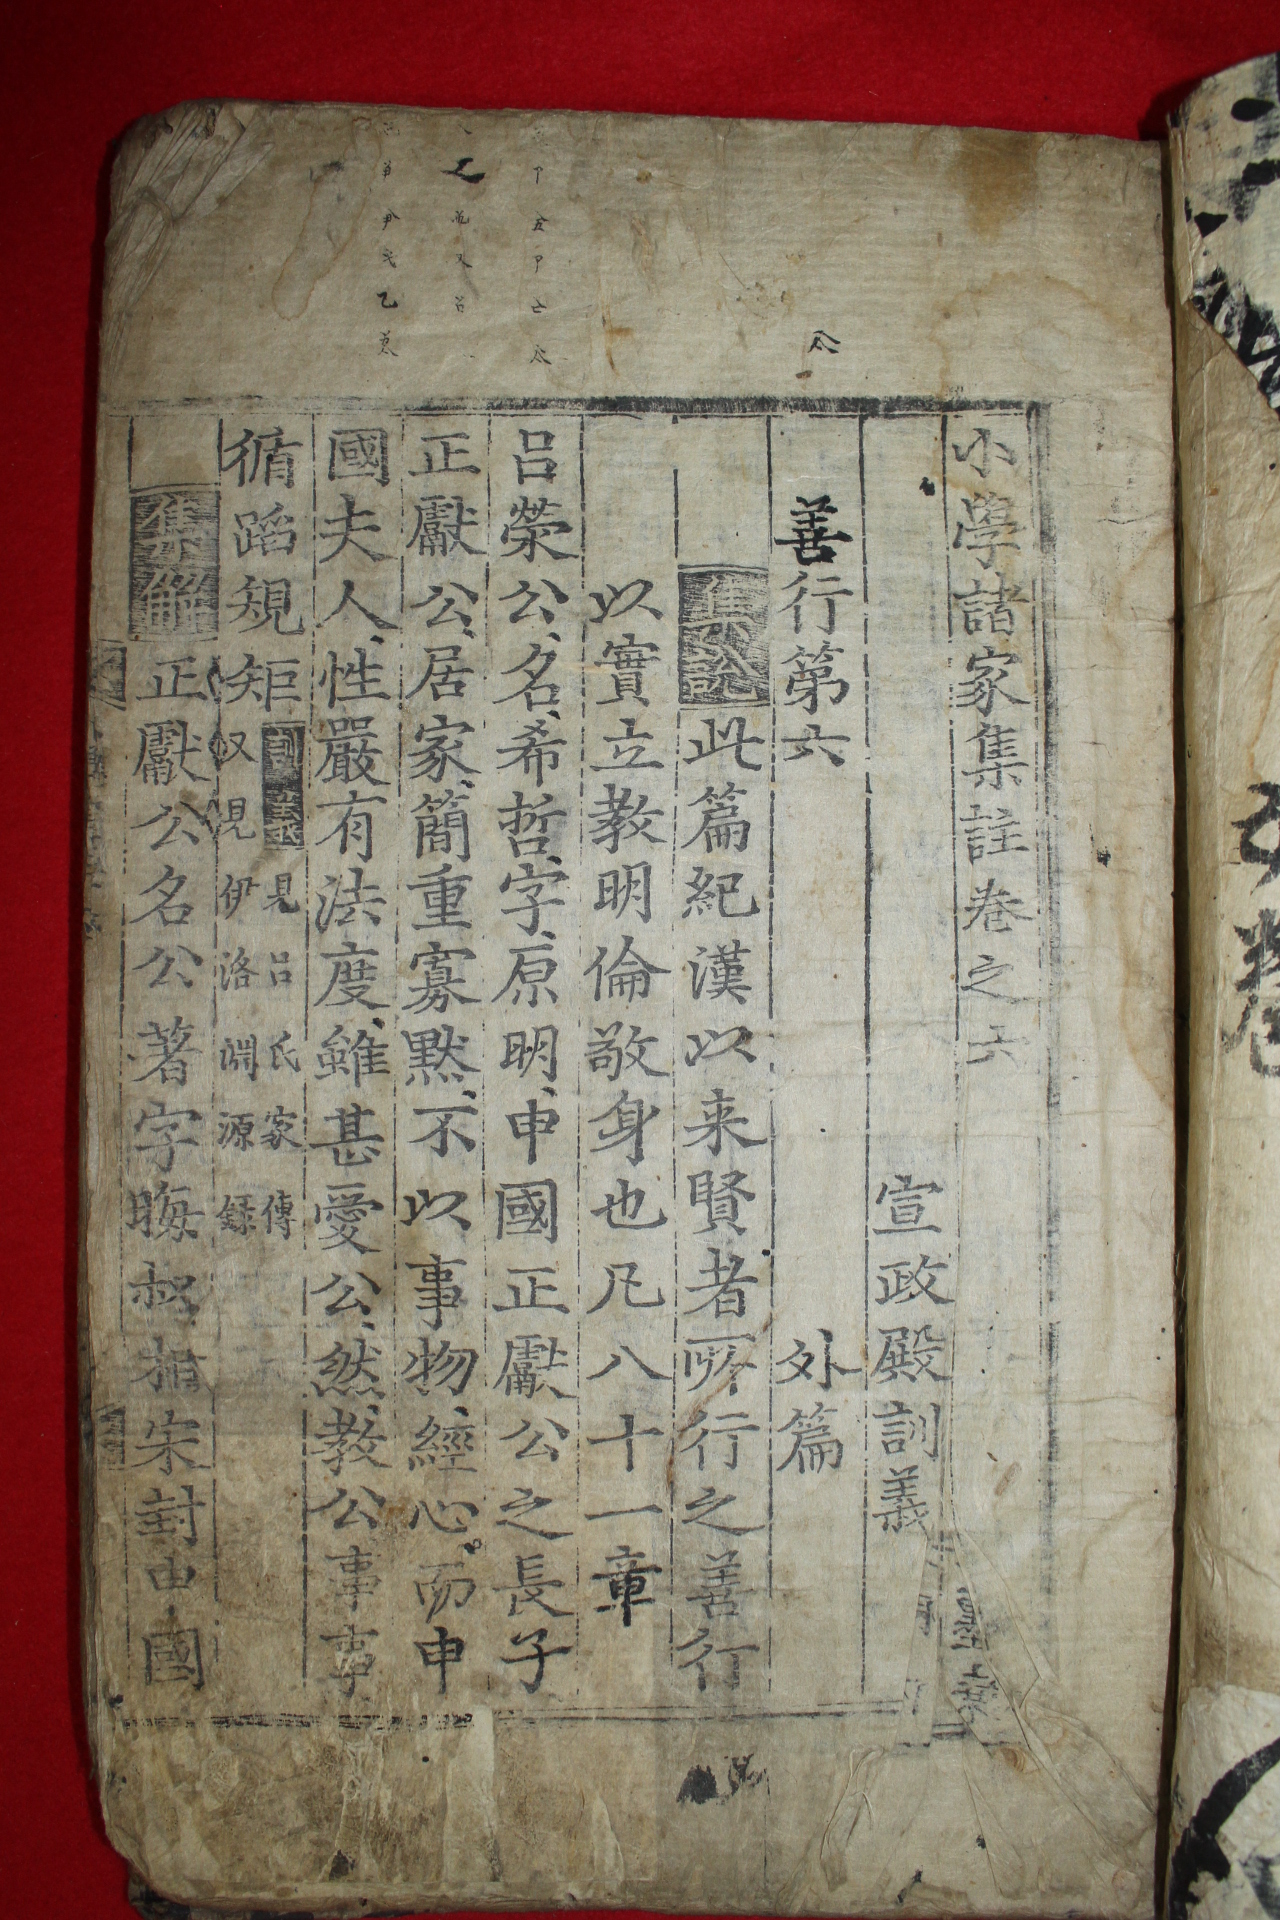 小學諸家集註卷之六
宣政殿訓義
善行第六 外篇
集說 此篇紀漢以来賢者所行之善行
以實立教明倫敬身也凡八十一章
呂滎公、名希哲、字原明、申國正獻公之長子
正獻公、居家、簡重寡黙、不以事物、經心。而申
國夫人、性嚴有法度、雖甚愛公、然教公事事、
循蹈規矩 訓義 見呂氏家傳
又見伊洛淵源録
集解 正獻公名公著字晦叔相宋封申國